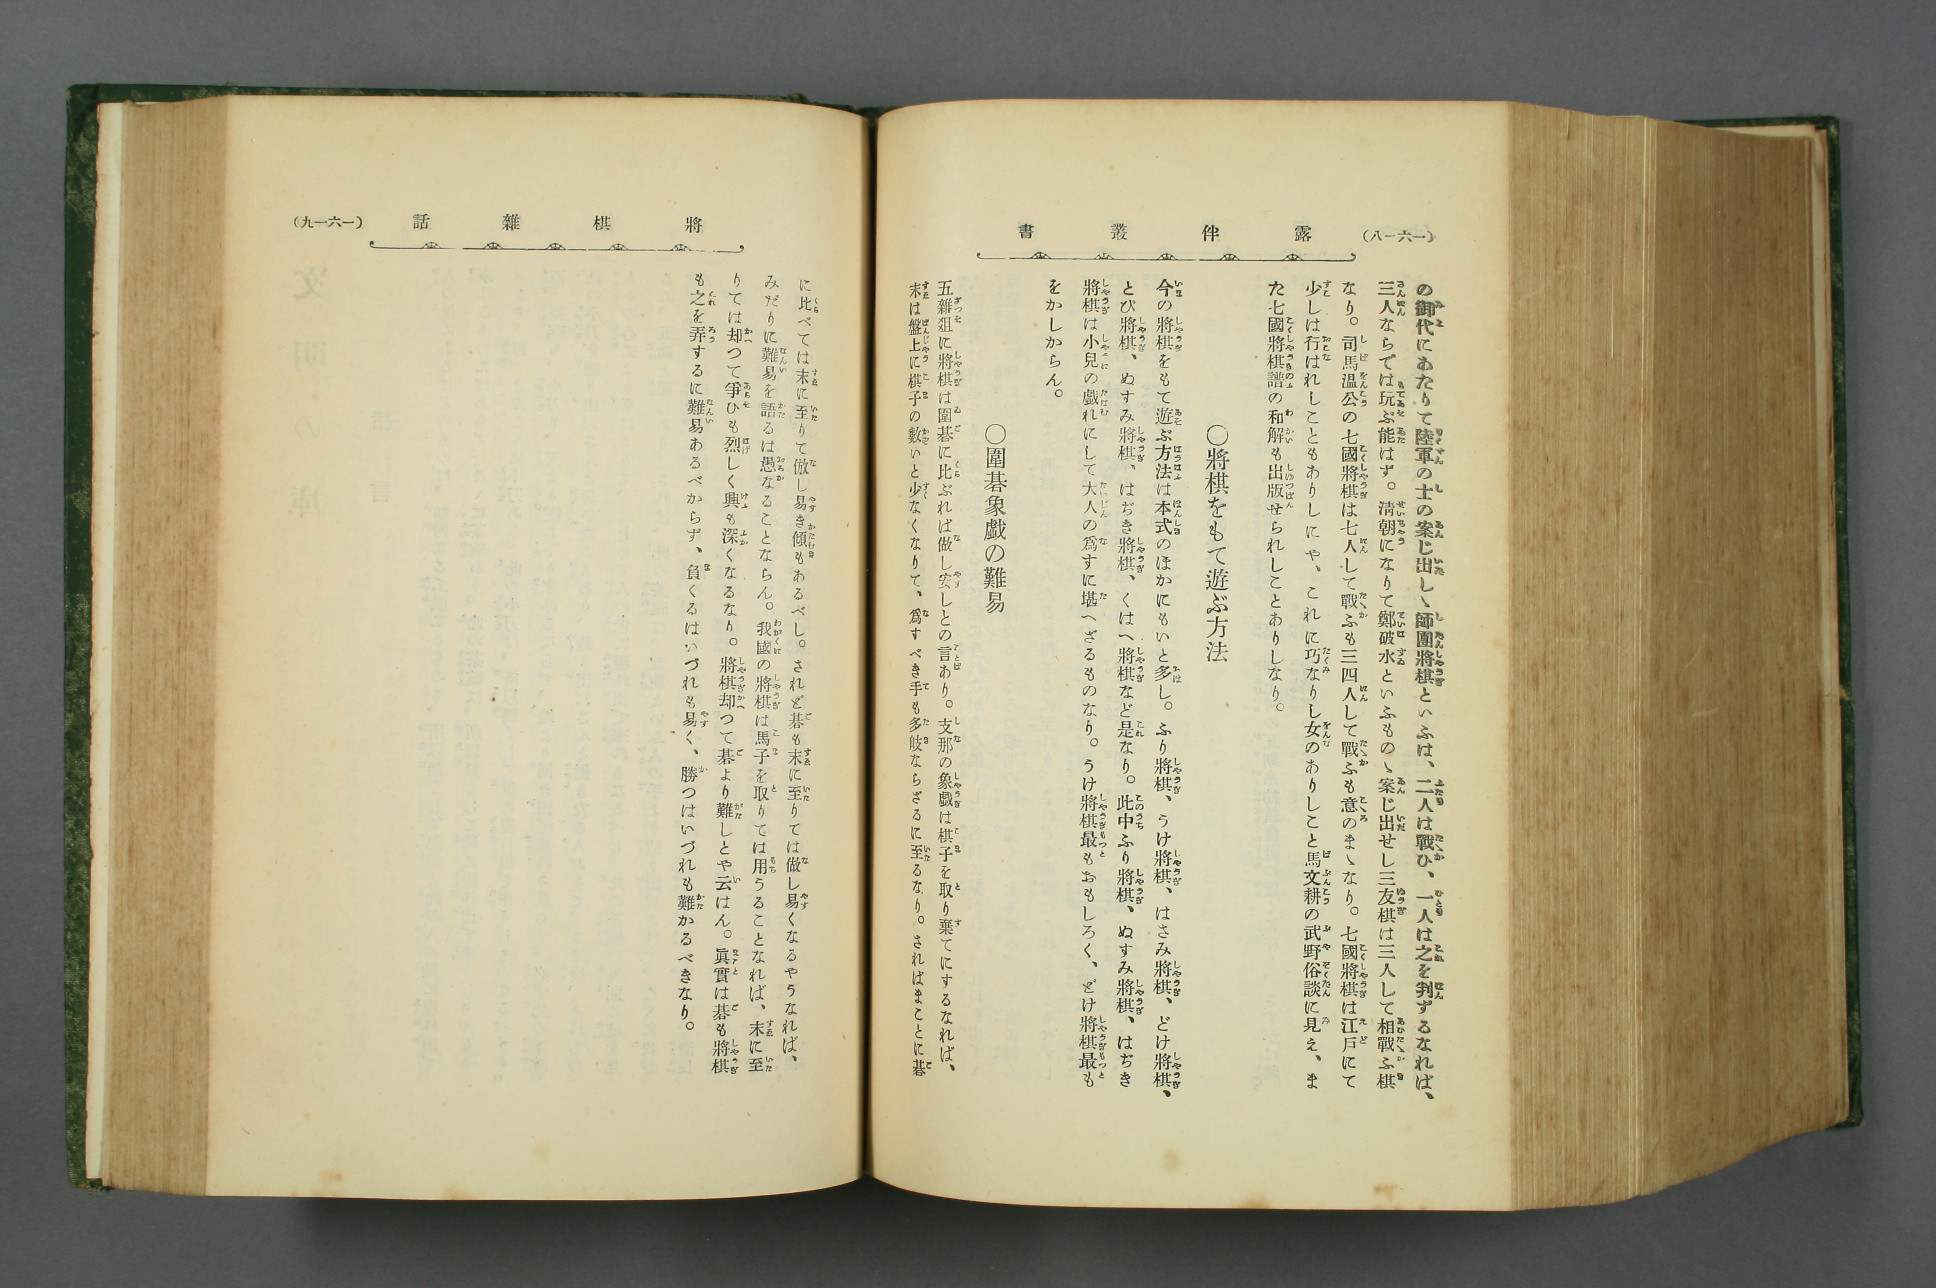 (一六一八)
露伴叢書
の御代にあたりて陸軍の士の案じ出しゝ師團將棋といふは、二人は戰ひ、一人は之を判ずるなれば、
三人ならでは玩ぶ能はず。清朝になりて鄭破水といふものゝ案じ出せし三友棋は三人して相戰ふ棋
なり。司馬溫公の七國將棋は七人して戰ふも三四人して戰ふも意のまゝなり。七國將棋は江戸にて
少しは行はれしこともありしにや、これに巧なりし女のありしこと馬文耕の武野俗談に見え、ま
た七國將棋譜の和解も出版せられしことありしなり。
〇將棋をもて遊ぶ方法
今の將棋をもて遊ぶ方法は本式のほかにもいと多し。ふり將棋、うけ將棋、はさみ將棋、どけ將棋、
とび將棋、ぬすみ將棋、はぢき將棋、くはへ將棋など是なり。此中ふり將棋、ぬすみ將棋、はぢき
將棋は小兒の戲れにして大人の爲すに堪へざるものなり。うけ將棋最もおもしろく、どけ將棋最も
をかしからん。
〇圍碁象戲の難易
五雜俎に將棋は圍碁に比ぶれば做し安しとの言あり。支那の象戲は棋子を取り棄てにするなれば、
末は盤上に棋子の數いと少なくなりて、爲すべき手も多岐ならざるに至るなり。さればまことに碁
將棋雜話
(一六一九)
に比べては末に至りて做し易き傾もあるべし。されど碁も末に至りては做し易くなるやうなれば、
みだりに難易を語るは愚なることならん。我國の將棋は馬子を取りては用うることなれば、末に至
りては却つて爭ひも烈しく興も深くなるなり。將棋却つて碁より難しとや云はん。眞實は碁も將棋
も之を弄するに難易あるべからず、負くるはいづれも易く、勝つはいづれも難かるべきなり。